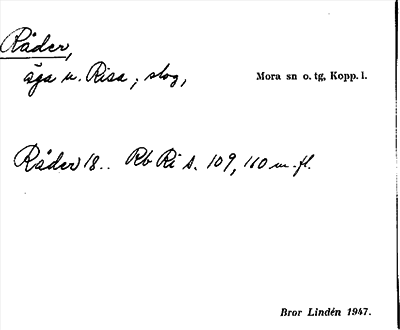 Råder,
äga u. Risa; slog,
Mora sn o. tg, Kopp. l.
Råder 18.. Rb Ri s. 109, 110 m. fl.
Bror Lindén 1947.